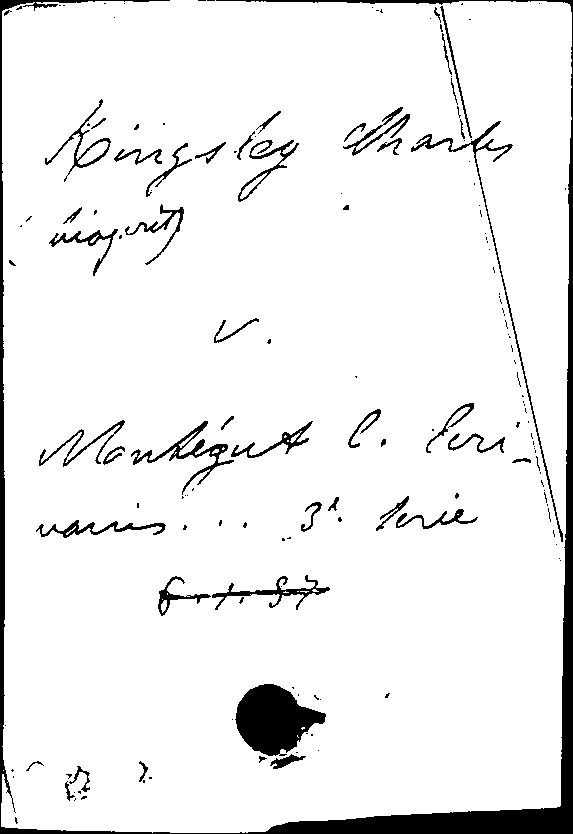 Kingsley Charles
v.
Montégut E. Écri-
vains... 3e. serie
6.1.37